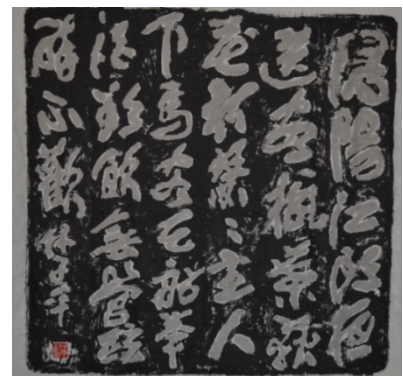 潯陽江頭夜
送客楓葉荻
花秋瑟〻主人
下馬客在船舉
酒欲飲無管弦
醉不歡